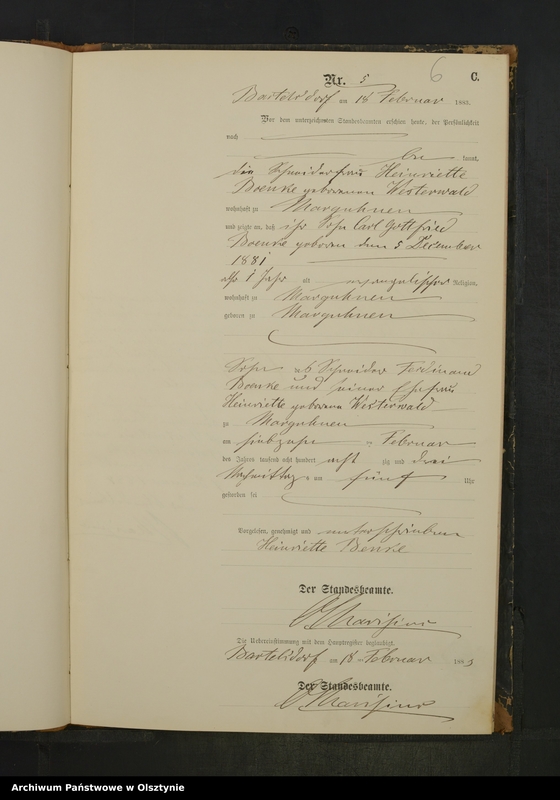 6
Nr. 5 C.
Bartelsdorf am 18 Februar 1883.
Vor dem unterzeichneten Standesbeamten erschien heute, der Persönlichkeit
nach
be kannt,
die Schneiderfrau Heinriette
Boenke geborenen Westerwald
wohnhaft zu Marguhnen
und zeigte an, daß ihr Sohn Carl Gottfried
Boenke geboren den 5 December
1881
1 Jahr alt evangelischer Religion,
wohnhaft zu Marguhnen
geboren zu Marguhnen
Sohn des Schneider Ferdinand
Boenke und seiner Ehefrau
Heinriette geborene Westerwald
zu Marguhnen
am siebzehn Februar
des Jahres tausend acht hundert acht zig und drei
Nachmittag um fünf Uhr
gestorben sei
Vorgelesen, genehmigt und unterschrieben
Heinriette Benke
Der Standesbeamte.
Die Uebereinstimmung mit dem Hauptregister beglaubigt.
Bartelsdorf am 18 Februar 1883
Der Standesbeamte.
Archiwum Państwowe w Olsztynie